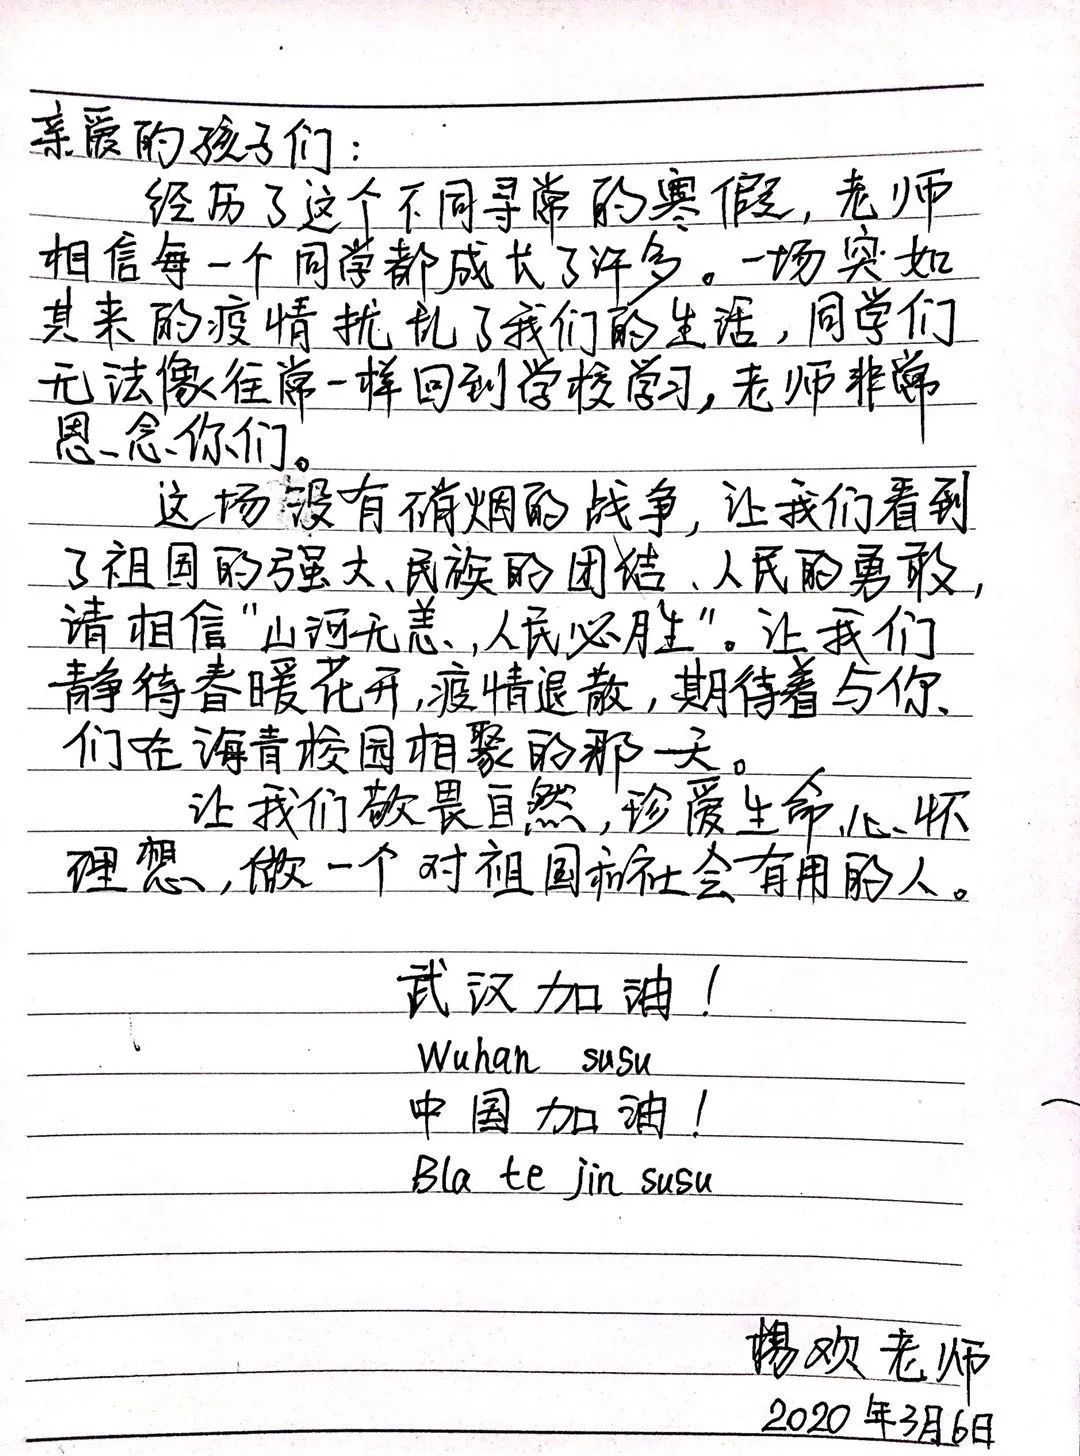 亲爱的孩子们：
经历了这个不同寻常的寒假，老师
相信每一个同学都成长了许多。一场突如
其来的疫情扰乱了我们的生活，同学们
无法像往常一样回到学校学习，老师非常
思念你们。
这场没有硝烟的战争，让我们看到
了祖国的强大、民族的团结、人民的勇敢，
请相信“山河无恙，人民必胜”。让我们
静待春暖花开，疫情退散，期待着与你
们在海青校园相聚的那一天。
让我们敬畏自然，珍爱生命，心怀
理想，做一个对祖国和社会有用的人。
武汉加油！
Wuhan susu
中国加油！
Bla te jin susu
杨欢老师
2020年3月6日